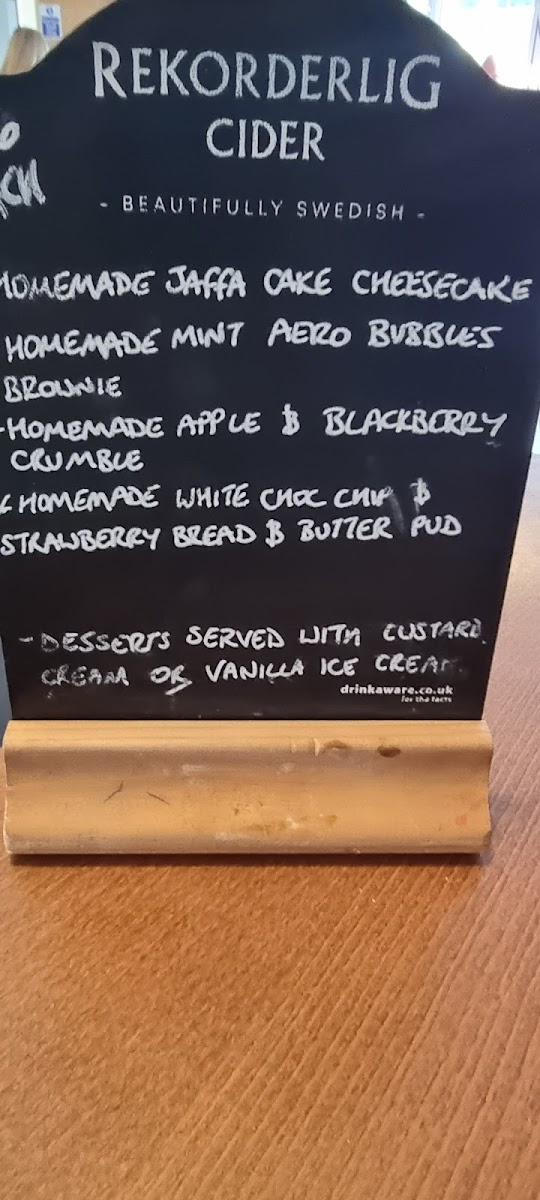 REKORDERLIG
CIDER
- BEAUTIFULLY SWEDISH -
HOMEMADE JAFFA CAKE CHEESECAKE
HOMEMADE MINT AERO BUBBLES
BROWNIE
-HOMEMADE APPLE & BLACKBERRY
CRUMBLE
HOMEMADE WHITE CHOC CHIP &
STRAWBERRY BREAD & BUTTER PUD
- DESSERTS SERVED WITH CUSTARD
CREAM OR VANILLA ICE CREAM
drinkaware.co.uk
for the facts